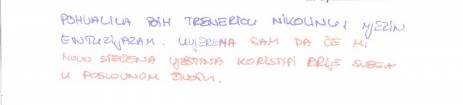 POHVALILA BIH TRENERICU NIKOLINU I NJEZIN
ENTUZIJAZAM. UVJERENA SAM DA ĆE MI
NOVO STEČENA VJEŠTINA KORISTITI PRIJE SVEGA
U POSLOVNOM ŽIVOTU.